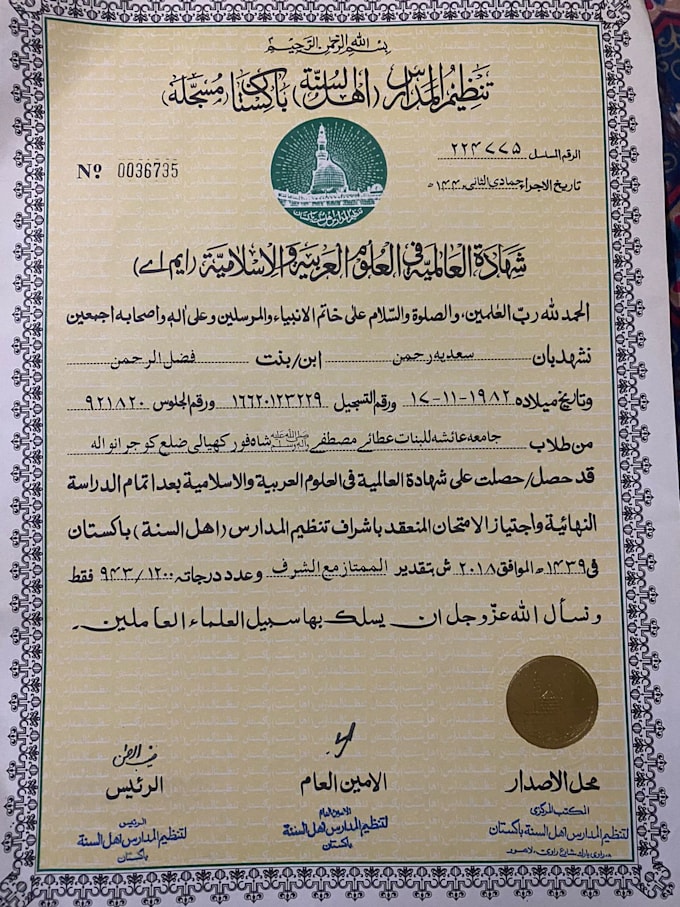 بسم الله الرحمن الرحيم
تنظيم المدارس (اهل السنة) باكستان (مسجلة)
الرقم المسلسل ۲۲۴۷۷۵
Nº 0036735
تاریخ الاجراء جمادی الثانی ۱۴۴۰ھ
تنظیم المدارس اهل سنت پاکستان
شهادة العالمية في العلوم العربية والاسلامية (ایم اے)
الحمد لله ربّ العٰلمین، والصلوة والسّلام علیٰ خاتم الانبیاء والمرسلین وعلیٰ اٰلہٖ واصحابہ اجمعین
نشهد بان سعدیہ رحمن ابن/بنت فضل الرحمن
وتاریخ میلادہ ۱۹۸۲-۱۱-۱۷ ورقم التسجیل ۱۶۶۲۰۱۲۳۲۲۹ ورقم الجلوس ۹۲۱۸۲۰
من طلاب جامعہ عائشہ للبنات عطائے مصطفےٰ ﷺ شاہ فور کھیالی ضلع کوجرانوالہ
قد حصل/حصلت علی شهادة العالمية فی العلوم العربیة والاسلامیة بعد اتمام الدراسة
النهائیة واجتیاز الامتحان المنعقد باشراف تنظیم المدارس (اهل السنة) باکستان
فی ۱۴۳۹ھ الموافق ۲۰۱۸ ش بتقدیر الممتاز مع الشرف وعدد درجاتہ ۹۴۳/۱۲۰۰ فقط
ونسأل الله عزّوجل ان یسلك بها سبیل العلماء العاملین۔
محل الاصدار
الامین العام
الرئیس
المکتب المرکزی
لتنظیم المدارس اهل السنة باکستان
راوی پارک شارع راوی، لاهور
الامین العام
لتنظیم المدارس اهل السنة
باکستان
الرئیس
لتنظیم المدارس اهل السنة
باکستان